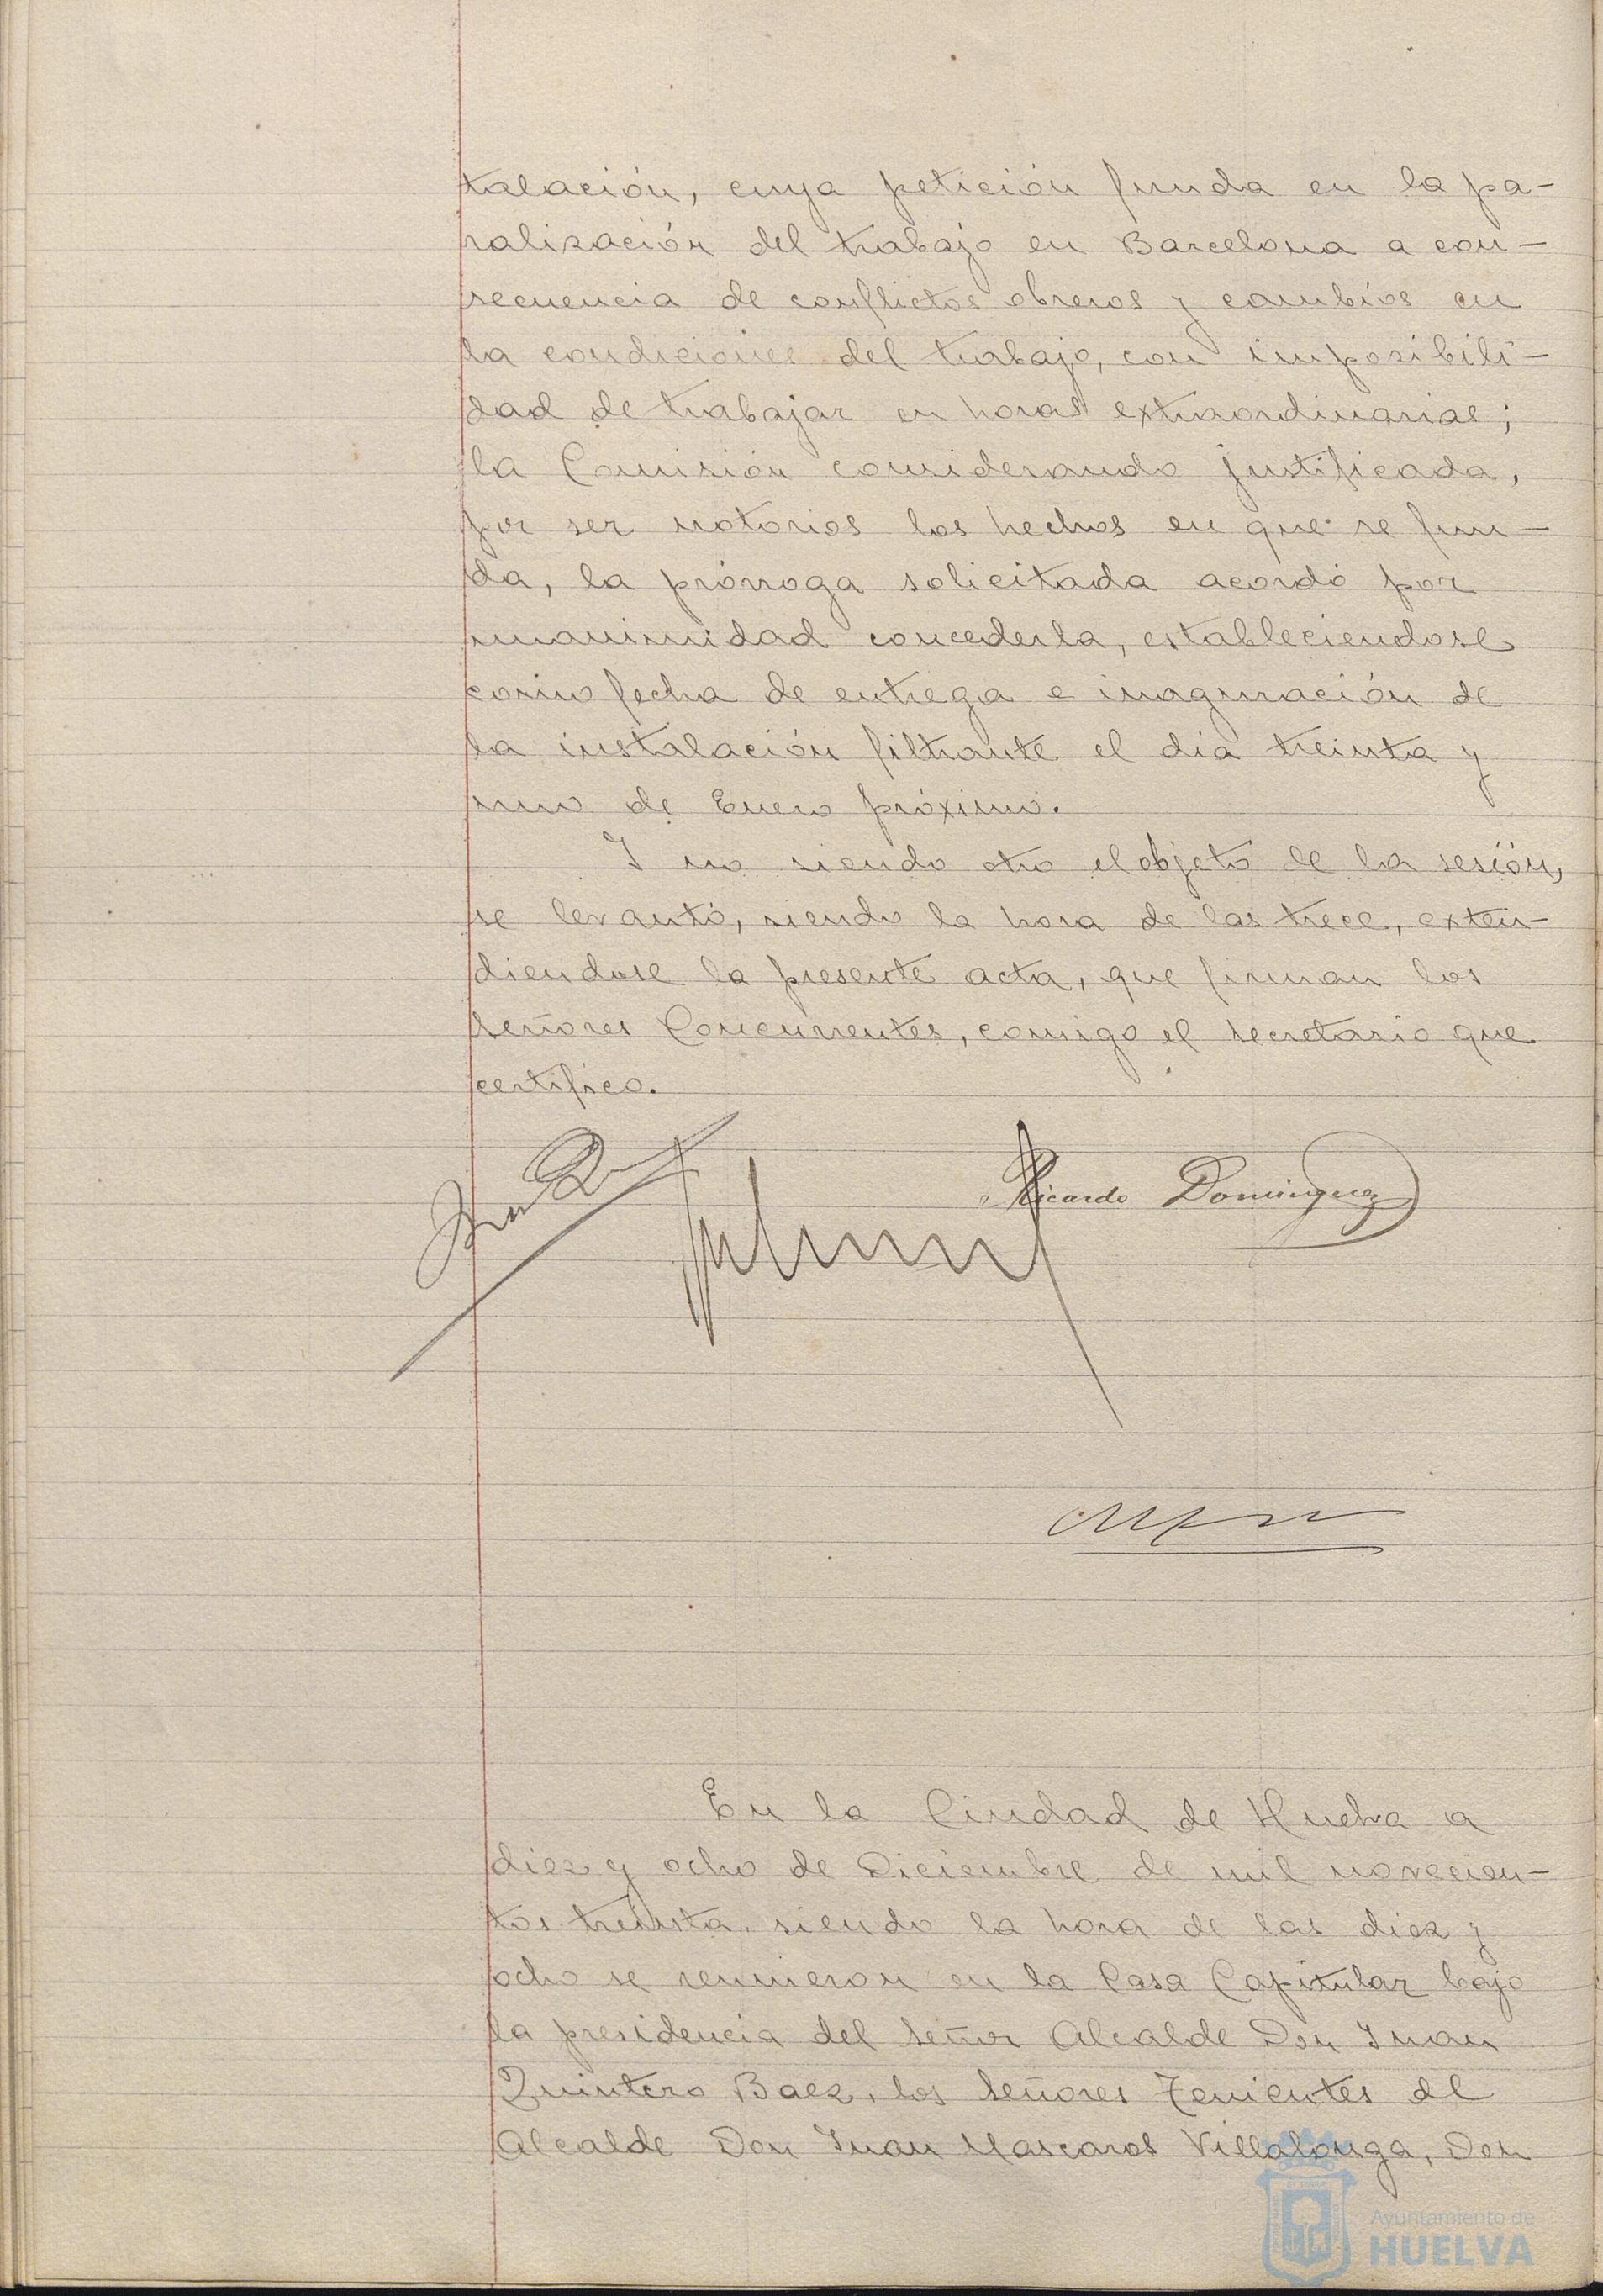 talación, cuya petición funda en la pa-
ralización del trabajo en Barcelona a con-
secuencia de conflictos obreros y cambios en
la condiciones del trabajo, con imposibili-
dad de trabajar en horas extraordinarias;
la Comisión considerando justificada,
por ser notorios los hechos en que se fun-
da, la prórroga solicitada acordó por
unanimidad concederla, estableciendose
como fecha de entrega e inaguración de
la instalación filtrante el dia treinta y
uno de Enero próximo.
Y no siendo otro el objeto de la sesión,
se levantó, siendo la hora de las trece, exten-
diendose la presente acta, que firman los
Señores Concurrentes, comigo el secretario que
certifico.
Ricardo Dominguez
En la Ciudad de Huelva a
diez y ocho de Diciembre de mil novecien-
tos treinta, siendo la hora de las diez y
ocho se reunieron en la Casa Capitular bajo
la presidencia del Señor Alcalde Don Juan
Quintero Baez, los Señores Tenientes de
Alcalde Don Juan Mascaros Villalonga, Don
Ayuntamiento de
HUELVA